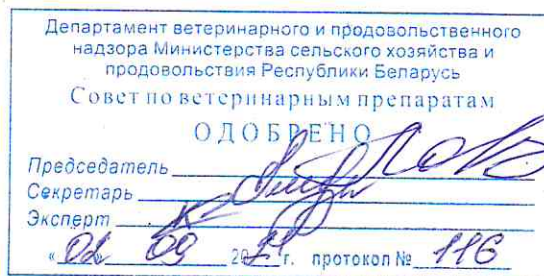 Департамент ветеринарного и продовольственного
надзора Министерства сельского хозяйства и
продовольствия Республики Беларусь
Совет по ветеринарным препаратам
ОДОБРЕНО
Председатель
Секретарь
Эксперт
« » 09 20 г. протокол № 116